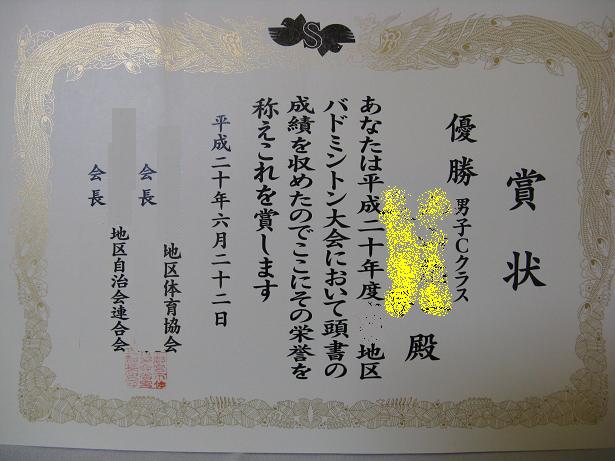 S
賞状
優勝 男子Cクラス
殿
あなたは平成二十年度 地区
バドミントン大会において頭書の
成績を収めたのでここにその栄誉を
称えこれを賞します
平成二十年六月二十二日
地区体育協会
会長
地区自治会連合会
会長